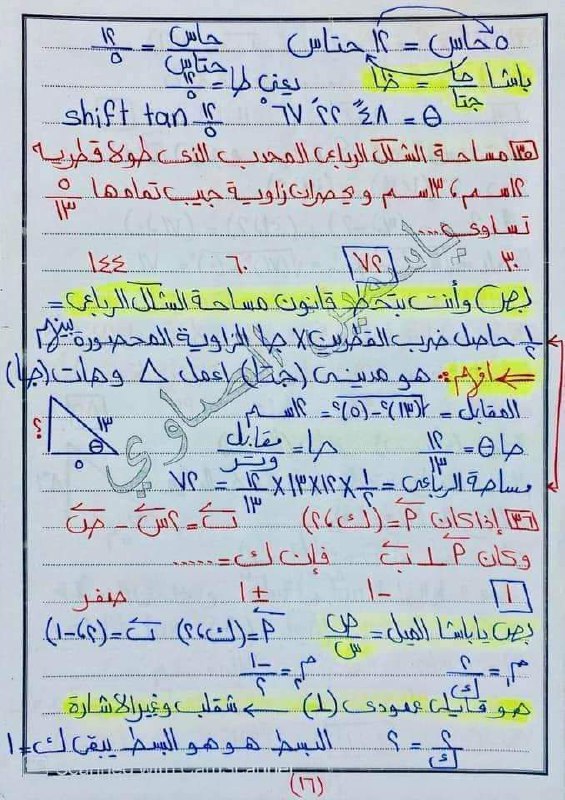 ٥ حاس = ١٢ حتاس    حاس/حتاس = ١٢/٥
باشا حا/جتا = ظا    يعني طا = ١٢/٥
θ = ٤٨ ً ٢٢ َ ٦٧ ْ    shift tan ١٢/٥
٣٥ مساحة الشكل الرباعي المحدب الذي طولا قطريه
١٢سم، ١٣سم ويحصران زاوية جيب تمامها ٥/١٣
تساوي....
٣٠    ٧٢    ٦٠    ١٤٤
بص وأنت بتحط قانون مساحة الشكل الرباعي =
١/٢ حاصل ضرب القطرين × جا الزاوية المحصورة بينهم
افهم: هو مديني (جتا) اعمل △ وهات (جا)
المقابل = √(١٣)² - (٥)² = ١٢سم
؟    ١٣    θ    ٥
حا θ = ١٢/١٣    حا = مقابل/وتر
مساحة الرباعي = ١/٢ × ١٢ × ١٣ × ١٢/١٣ = ٧٢
٣٦ إذا كان P = (ك، ٢)    ب = ٢س - ص
وكان P ⊥ ب فإن ك = .....
١    -١    ±١    صفر
بص يا باشا الميل = ص/س    P = (ك، ٢)    ب = (٢، -١)
م١ = ٢/ك    م٢ = -١/٢
هو قايلي عمودي (⊥) ← شقلب وغير الاشارة
٢/ك = ٢    البسط هو هو البسط يبقى ك = ١
(١٦)